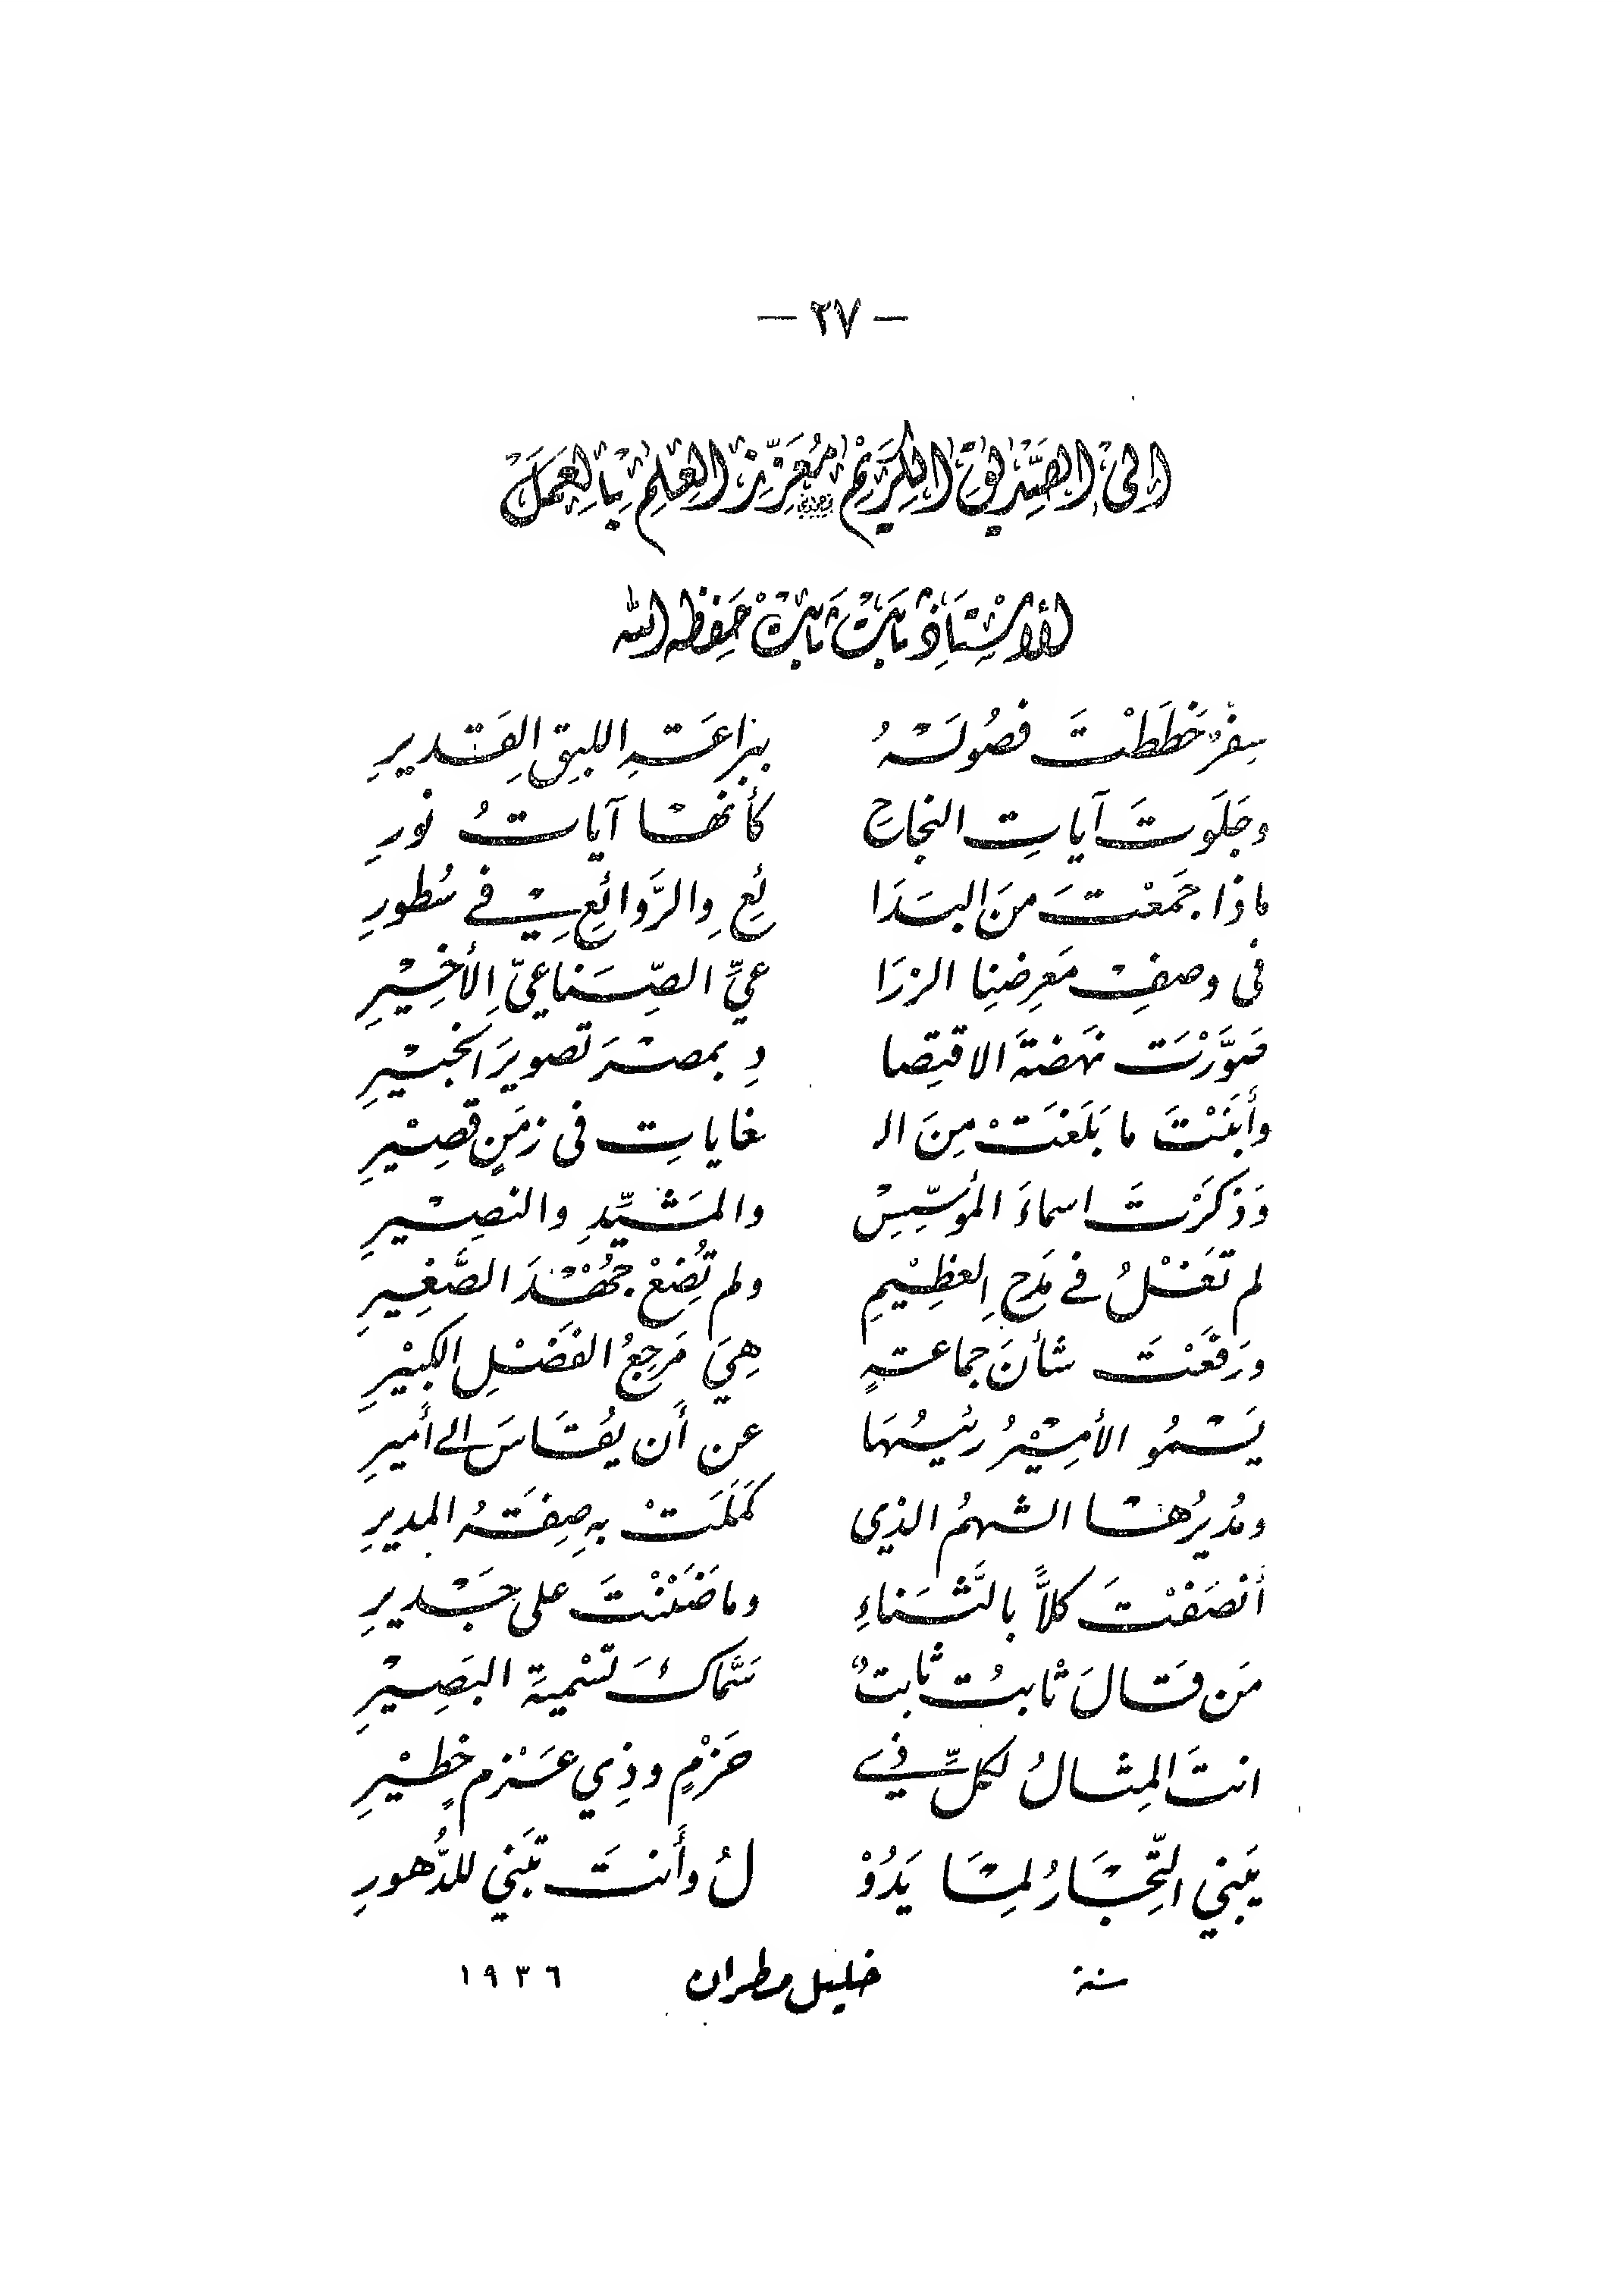 — ٢٧ —
الى الصَّدِيقِ الكِرَيْمِ مُعَزِّزِ العِلِمْ بِالعِمَلَ
الأُسْتَاذْ ثابتْ ثابتْ حَفِظَه الله
سِفرٌ خَطَطْتَ فصُولَهُ ببَراعَةِ اللبِقِ القَديرِ
وجَلَوتَ آياتِ النجاحِ كأنهَا آياتُ نُورِ
ماذا جمَعْتَ منَ البَدَا ئِعِ والرَّوائِعِ في سُطورِ
فى وصفِ مَعرِضِنا الزرَا عيِّ الصِّناعيِّ الأخِيْرِ
صَوَّرْتَ نهَضةَ الاقتِصا دِ بمصْرَ تصويرَ الخبيْرِ
وأَبَنْتَ ما بَلَغَتْ مِنَ الـ غاياتِ فى زمَنٍ قصِيْرِ
وَذكَرْتَ اسماءَ المُؤسِّسِ والمَشَيِّدِ والنصِيْرِ
لم تَغْلُ في مَدحِ العظِيْمِ ولم تُضِعْ جُهْدَ الصَّغِيرِ
ورَفَعْتَ شأنَ جماعةٍ هِيَ مَرجِعُ الفَضْلِ الكبيْرِ
يَسْمُو الأمِيْرُ رئيسُهَا عن أَن يُقَاسَ الى أَميرِ
ومُديرُهَا الشهمُ الذي كَمَلَتْ بهِ صِفَةُ المديرِ
أنصَفْتَ كلاًّ بالثَّناءِ وما ضَنَنْتَ على جَديرِ
مَن قَالَ ثابتُ ثابتٌ سَمَّاكَ تسْميةَ البَصِيْرِ
انتَ المِثالُ لكلِّ ذي حَزْمٍ وذِي عَزمٍ خطيْرِ
يَبني التِّجَارُ لِمَا يَدُوْ لُ وأَنتَ تبَني للدُّهورِ
سنة خليل مطران ١٩٣٦